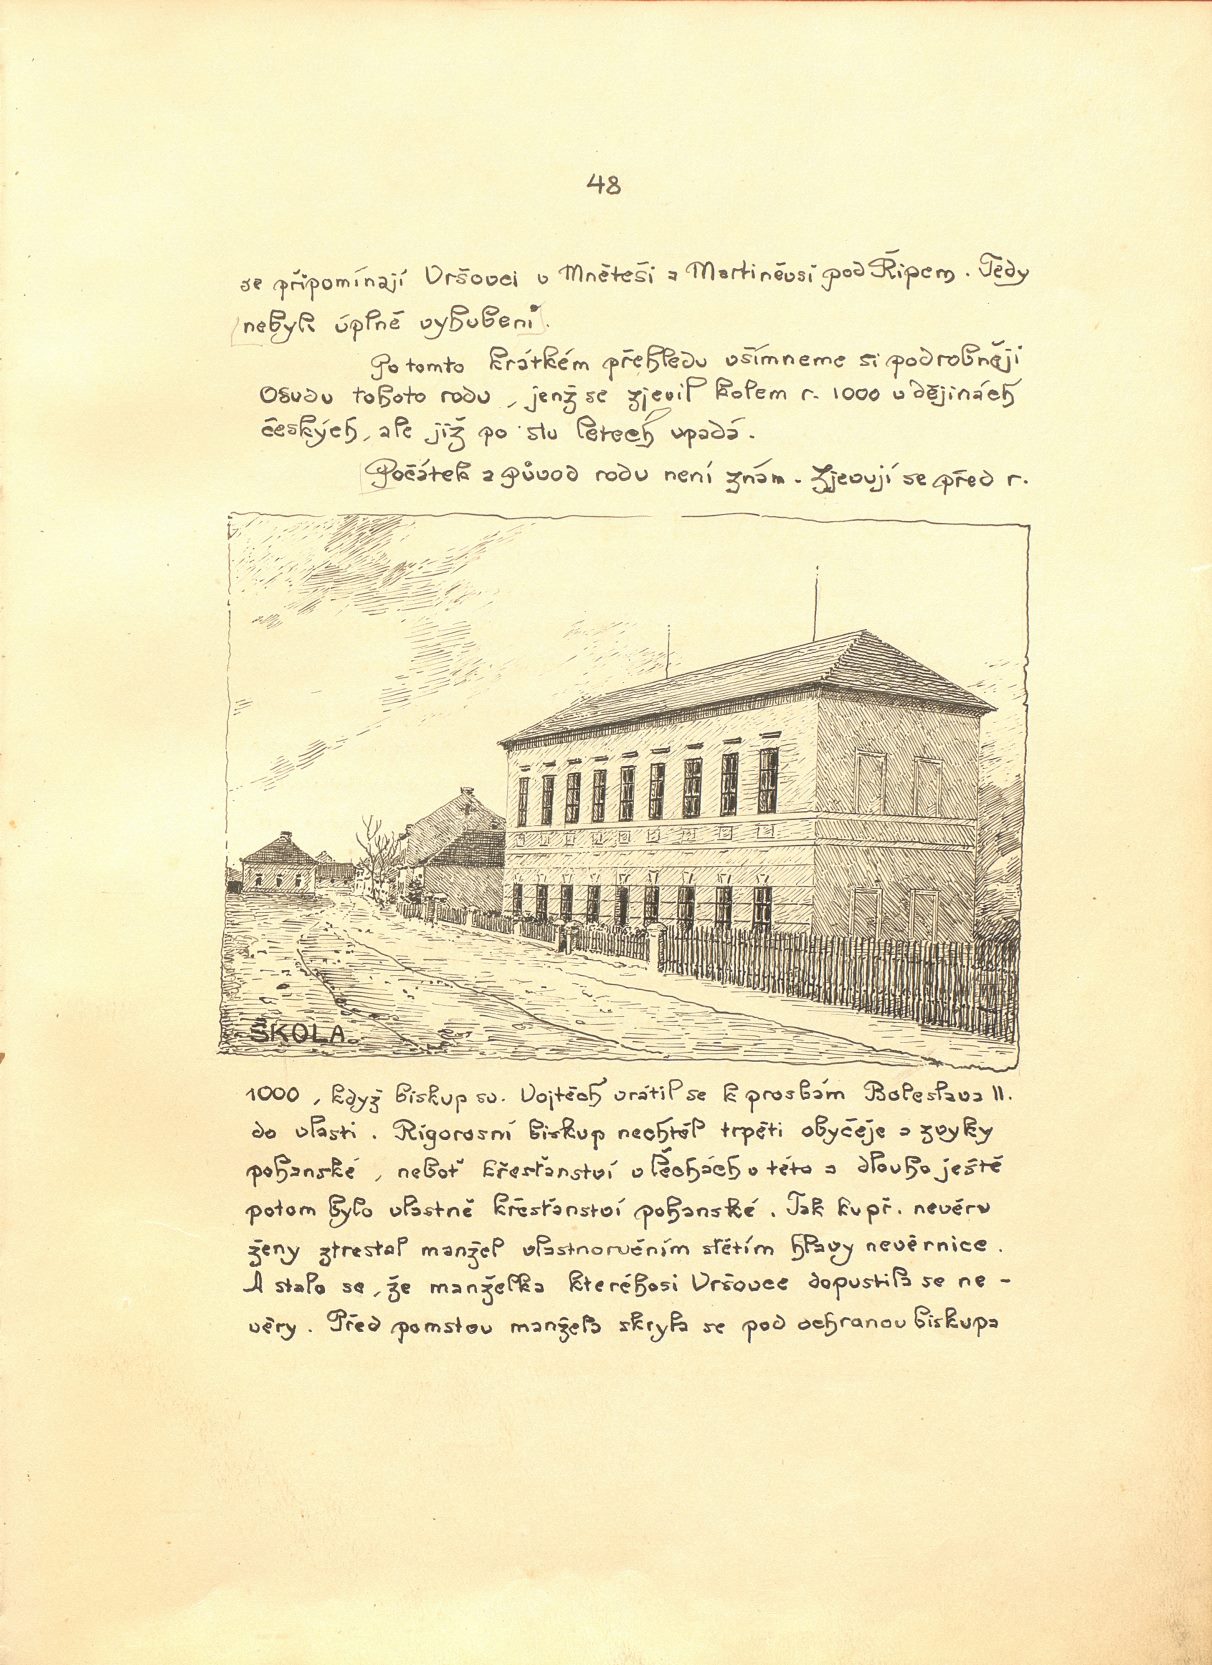 48
se připomínají Vršovci v Mněteši a Martiněvsi pod Řípem. Tedy
nebyli úplně vyhubeni.
Po tomto krátkém přehledu všimneme si podrobněji
Osudu tohoto rodu, jenž se zjevil kolem r. 1000 v dějinách
českých, ale již po stu letech upadá.
Počátek a původ rodu není znám. Zjevují se před r.
ŠKOLA.
1000, když biskup sv. Vojtěch vrátil se k prosbám Boleslava II.
do vlasti. Rigorosní biskup nechtěl trpěti obyčeje a zvyky
pohanské, neboť křesťanství v Čechách v této a dlouho ještě
potom bylo vlastně křesťanství pohanské. Tak kupř. nevěru
ženy ztrestal manžel vlastnoručním stětím hlavy nevěrnice.
A stalo se, že manželka kteréhosi Vršovce dopustila se ne-
věry. Před pomstou manžela skryla se pod ochranou biskupa